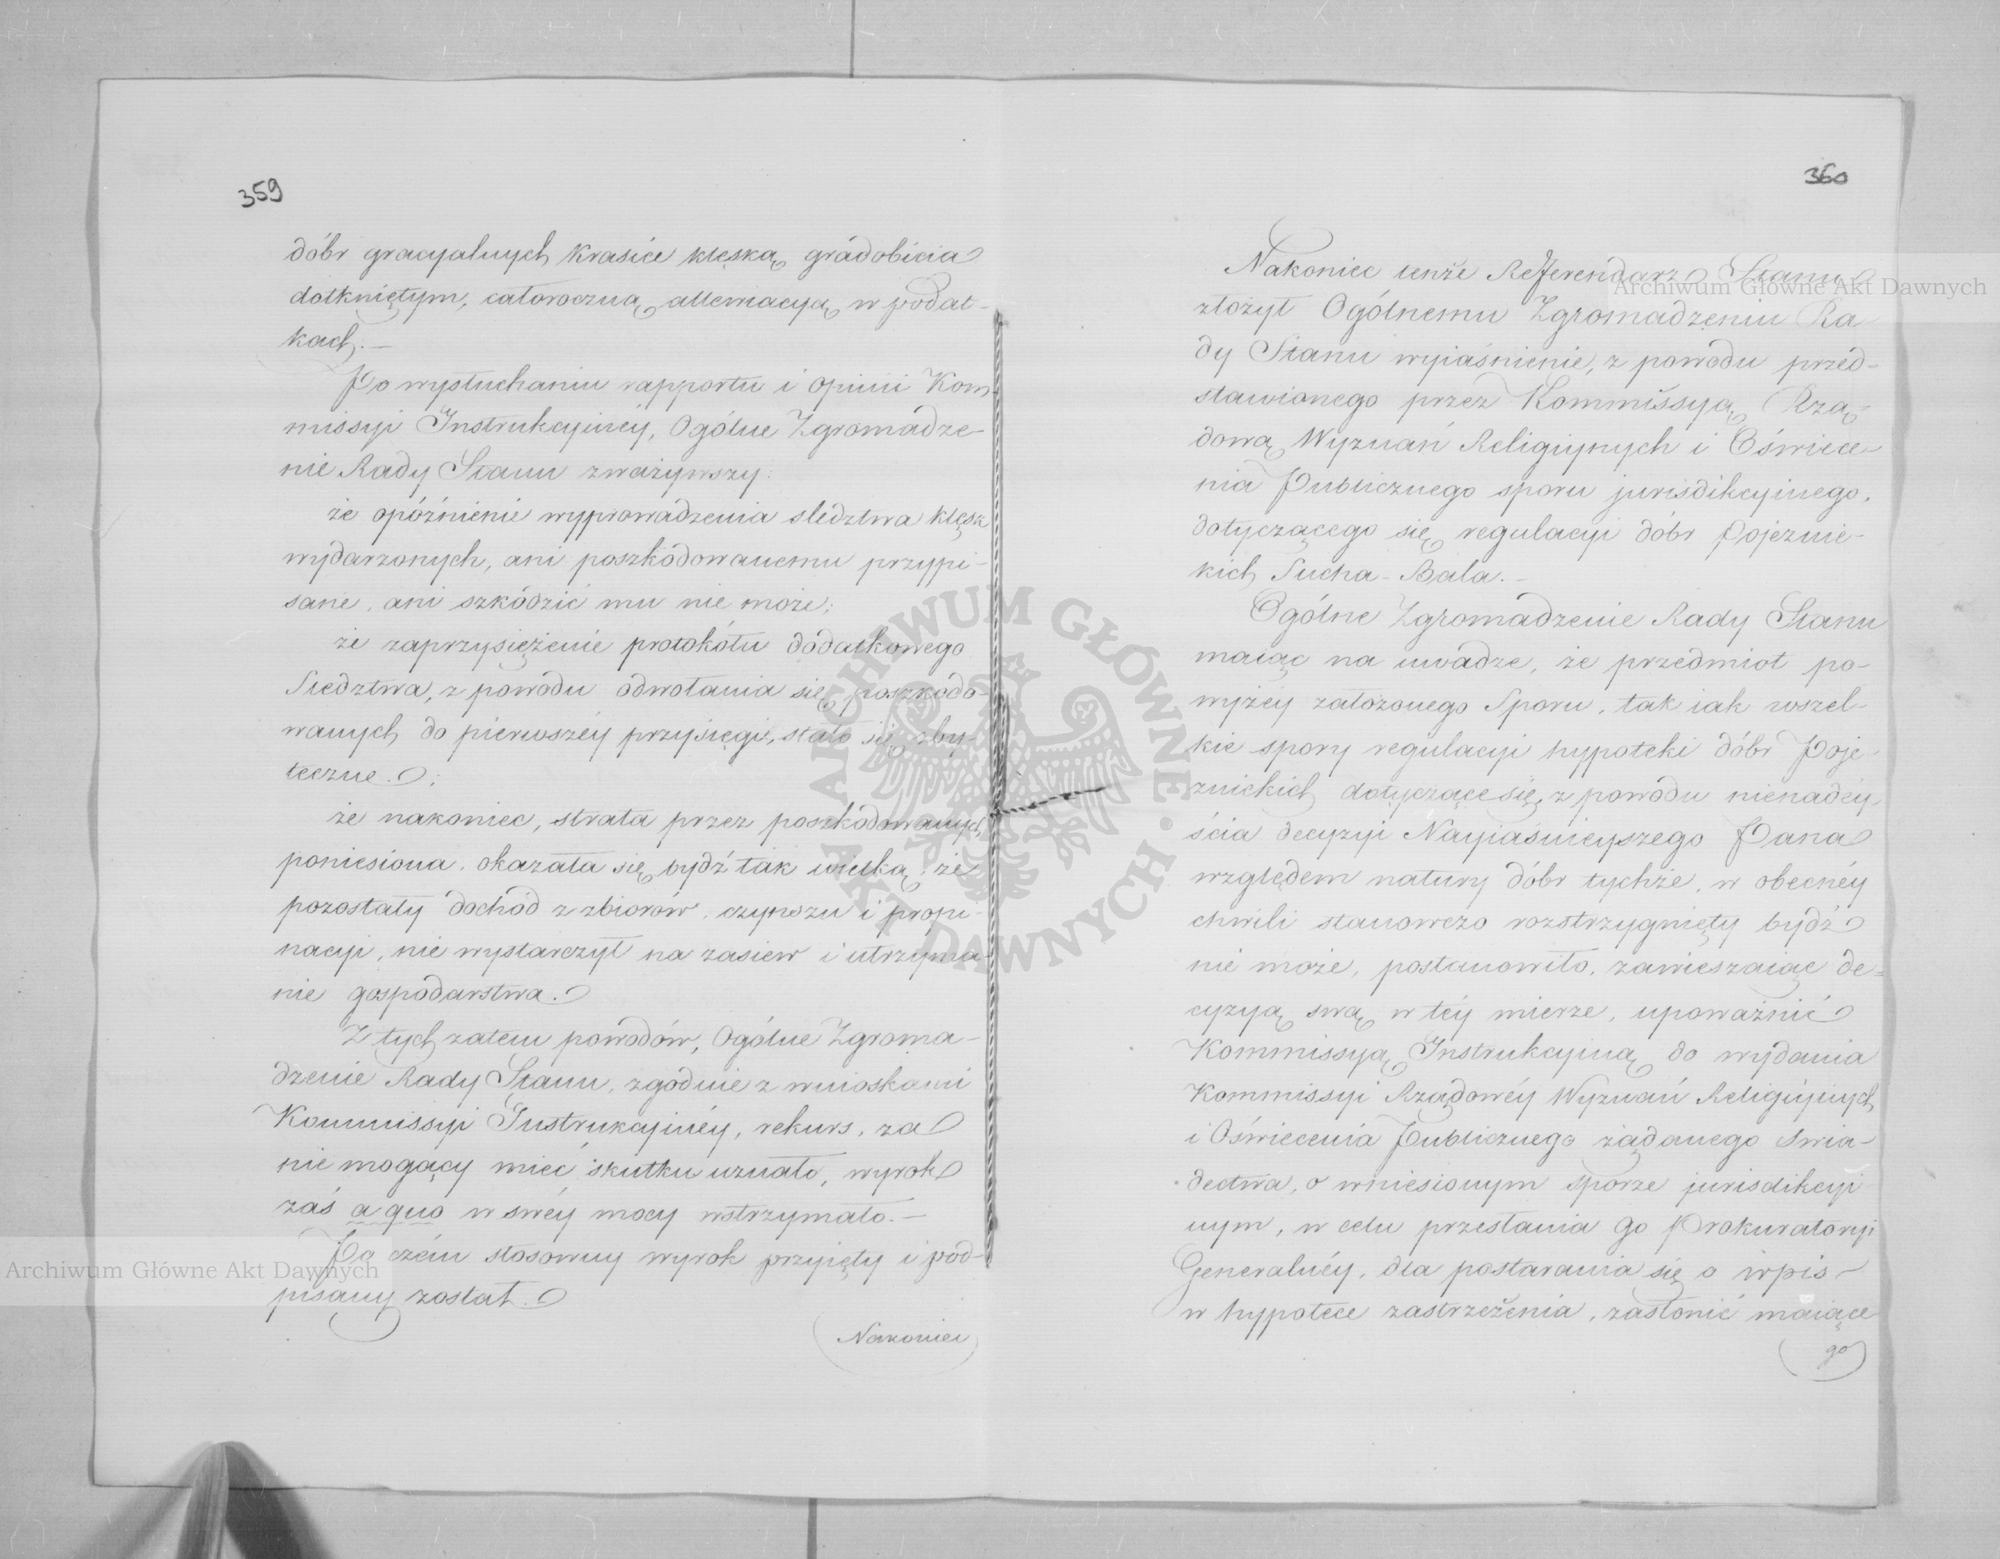 359
dóbr gracyalnych Krasice klęską gradobicia
dotkniętym, całoroczną allewiacyą w podat-
kach.—
Po wysłuchaniu rapportu i opinii Kom-
missyi Instrukcyinéy, Ogólne Zgromadze-
nie Rady Stanu zważywszy:
że opóźnienie wyprowadzenia sledztwa klęsk
wydarzonych, ani poszkodowanemu przypi-
sane, ani szkodzić mu nie może;
że zaprzysiężenie protokółu dodatkowego
Śledztwa, z powodu odwołania się poszkodo-
wanych do pierwszéy przysięgi, stało się zby-
teczne.;
że nakoniec, strata przez poszkodowanych
poniesiona, okazała się bydź tak wielką, że
pozostały dochód z zbiorów, czynszu i propi-
nacyi, nie wystarczył na zasiew i utrzyma-
nie gospodarstwa.
Z tych zatem powodów, Ogólne Zgroma-
dzenie Rady Stanu, zgodnie z wnioskami
Kommissyi Instrukcyinéy, rekurs, za
nie mogący mieć skutku uznało, wyrok
zaś a quo w swéy mocy wstrzymało.—
Po czém stosowny wyrok przyięty i pod-
pisany został.
Nakoniec
360
Nakoniec tenże Refferendarz Stanu
złożył Ogólnemu Zgromadzeniu Ra
dy Stanu wyiaśnienie, z powodu przed-
stawionego przez Kommissyą Rzą-
dową Wyznań Religiynych i Oświece-
nia Publicznego sporu jurisdikcyinego,
dotyczącego się regulacyi dóbr Pojeznic-
kich Sucha-Bala.—
Ogólne Zgromadzenie Rady Stanu
maiąc na uwadze, że przedmiot po-
wyżéy założonego Sporu, tak iak wszel-
kie spory regulacyi hypoteki dóbr Poje-
znickich dotyczące się, z powodu nienadéy-
ścia decyzyi Nayiaśnieyszego Pana
względem natury dóbr tychże, w obecnéy
chwili stanowczo rozstrzygnięty bydź
nie może, postanowiło, zawieszaiąc de-
cyzyą swą w téy mierze, upoważnić
Kommissyą Instrukcyiną do wydania
Kommissyi Rządowéy Wyznań Religiynych
i Oświecenia Publicznego żądanego Świa-
dectwa, o wniesionym sporze jurisdikcyi
nym, w celu przesłania go Prokuratoryi
Generalnéy, dla postarania się o wpis
w hypotece zastrzeżenia, zasłonić maiące
go
Archiwum Główne Akt Dawnych
Archiwum Główne Akt Dawnych
ARCHIWUM GŁÓWNE AKT DAWNYCH